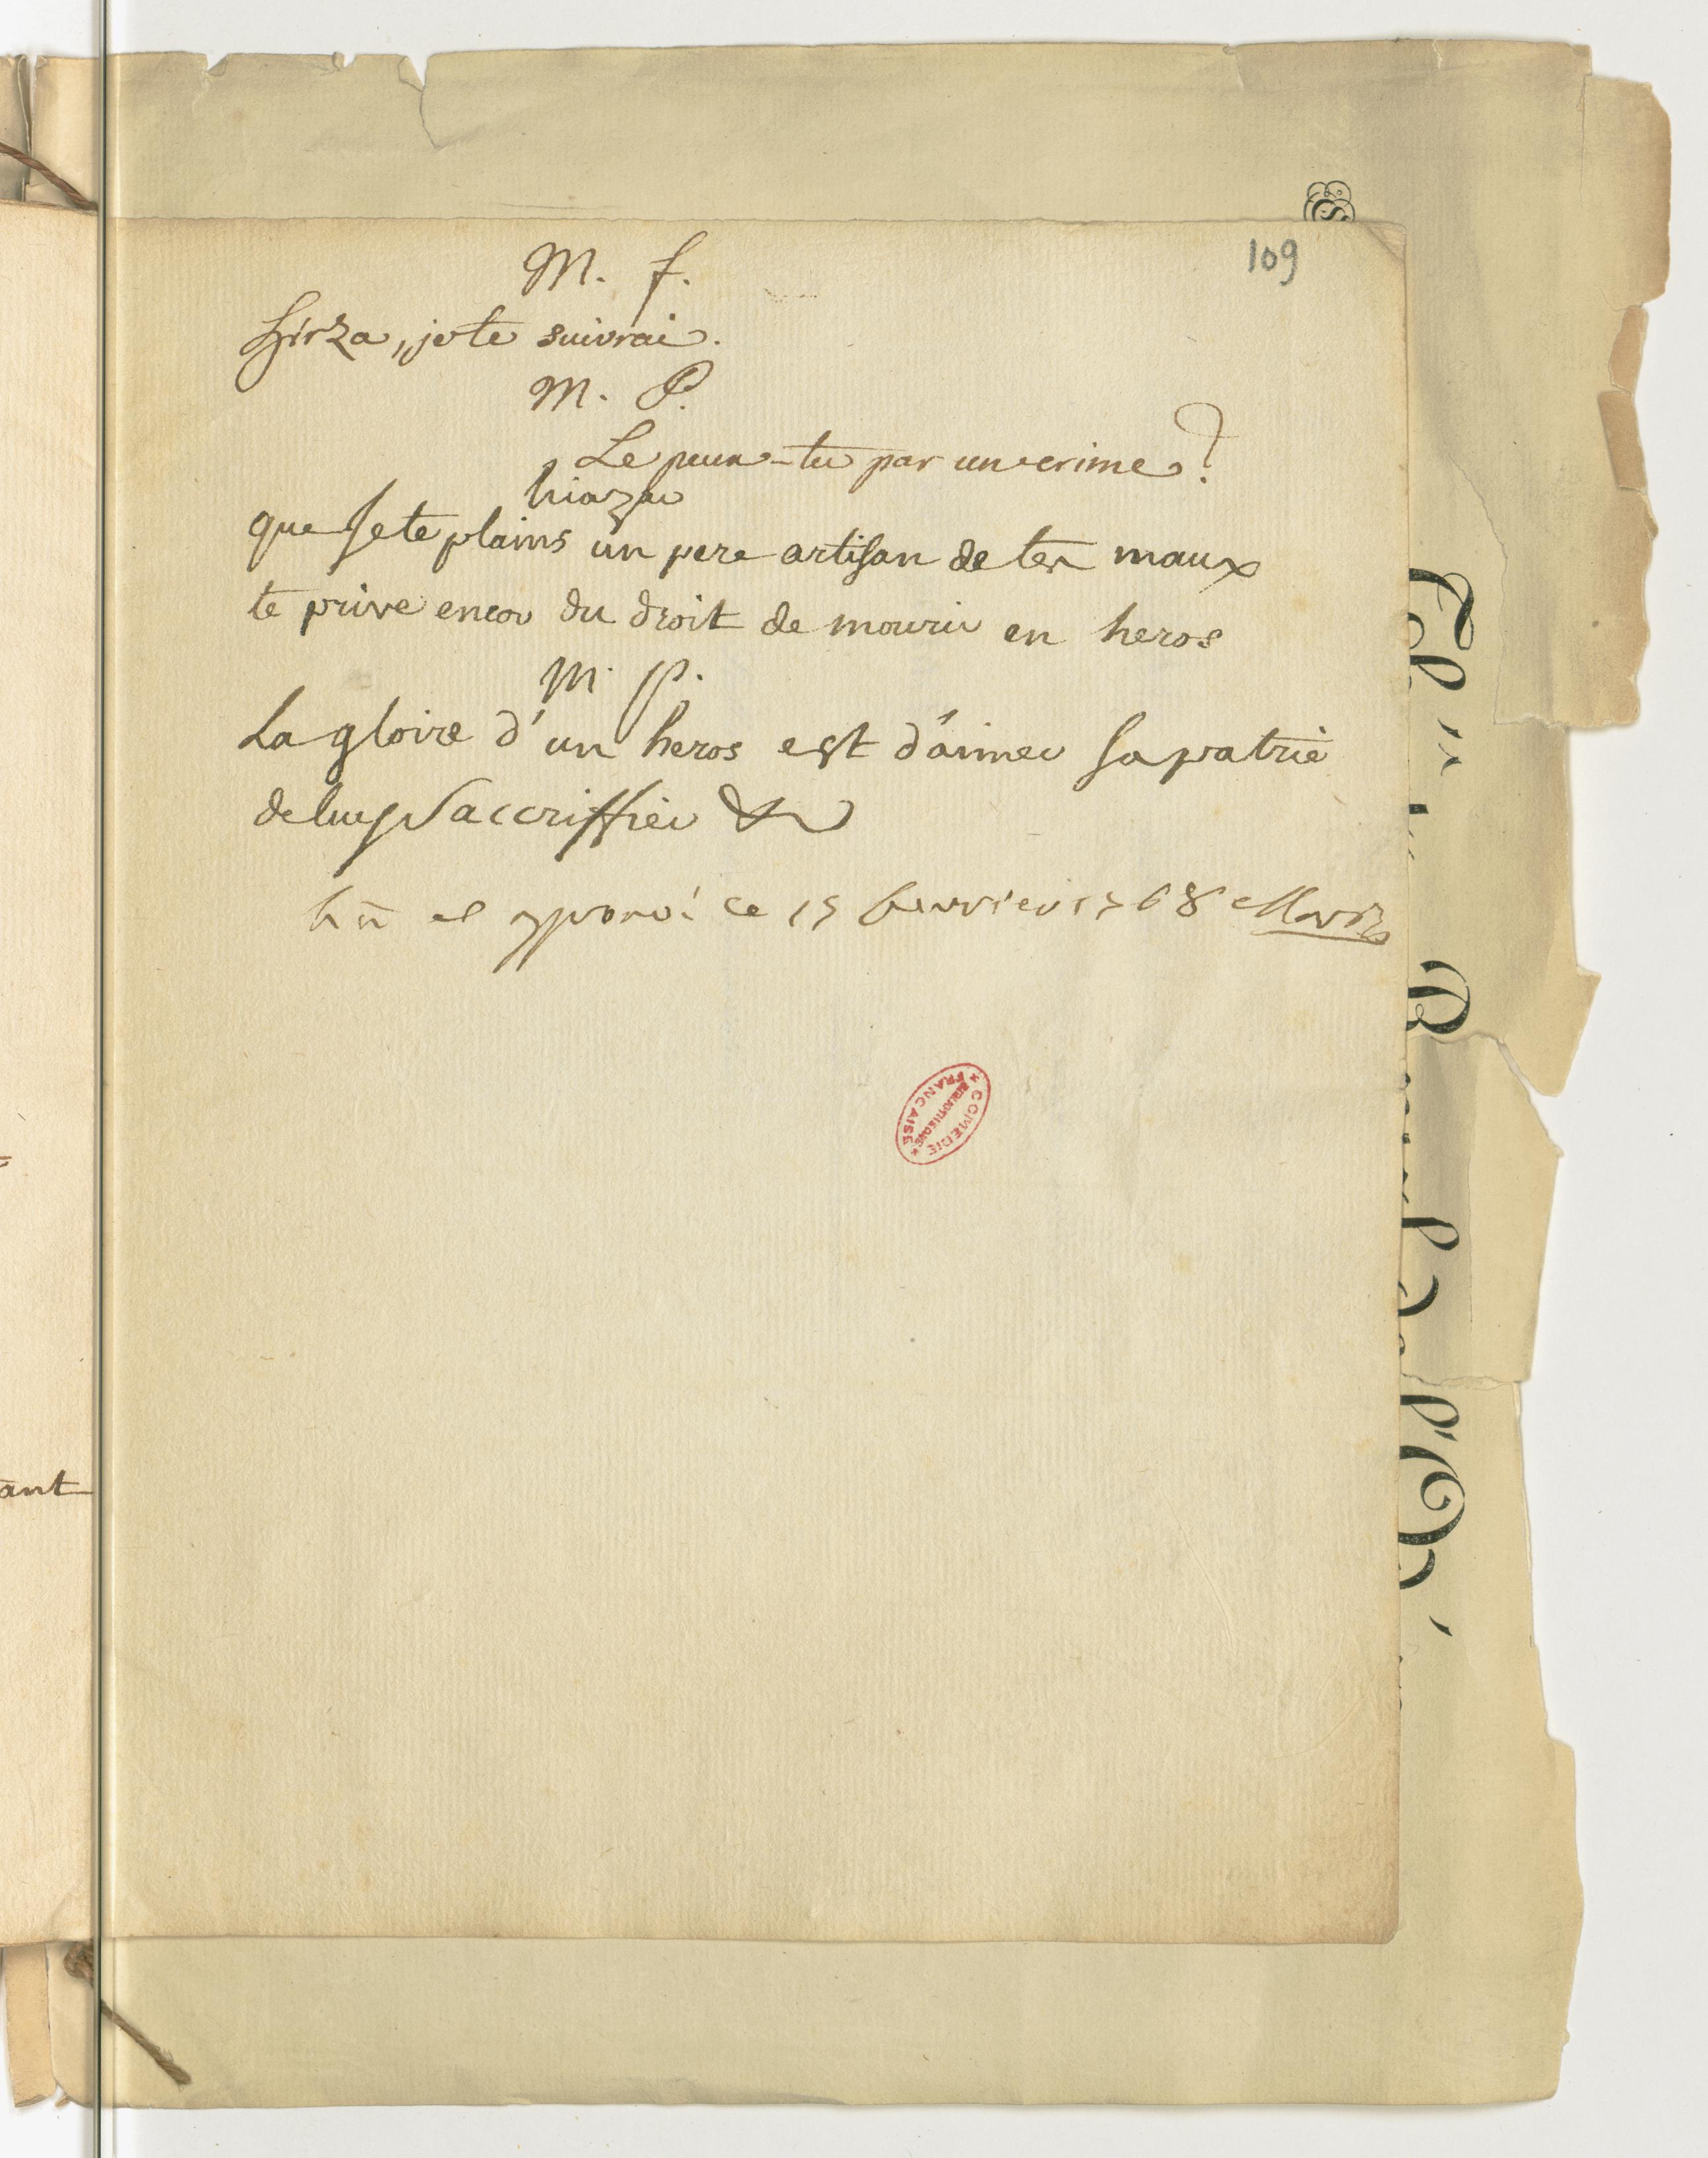 109
M. f.
hirza, je te suivrai.
M. P.
Le peux-tu par un crime?
hiaza
que Je te plains un pere artisan de tes maux
te prive encor du droit de mourir en heros
M. P.
La gloire d'un heros est d'aimer sa patrie
de luy Saccriffier &
ce 15 fevrier 1768 Marin
COMEDIE FRANCAISE
BIBLIOTHEQUE
ant